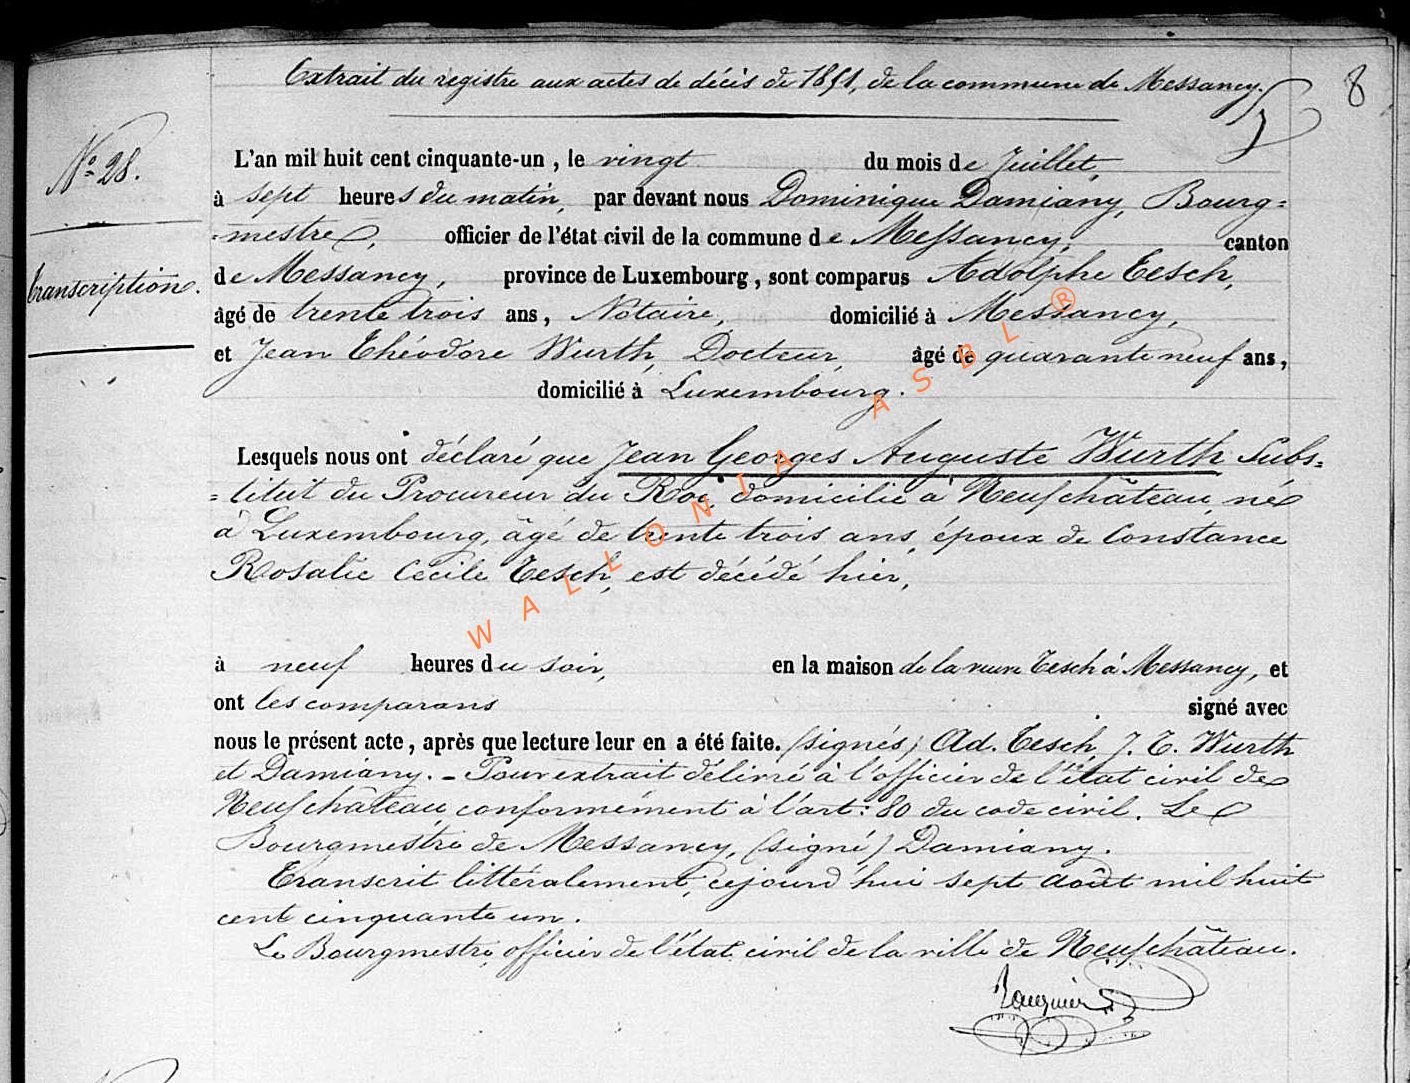 Extrait du registre aux actes de décès de 1851, de la commune de Messancy.
8
N° 28.
Transcription.
L'an mil huit cent cinquante-un, le vingt du mois de Juillet,
à sept heures du matin, par devant nous Dominique Damiany, Bourg=
=mestre, officier de l'état civil de la commune de Messancy, canton
de Messancy, province de Luxembourg, sont comparus Adolphe Tesch,
âgé de trente trois ans, Notaire, domicilié à Messancy,
et Jean Théodore Wurth, Docteur, âgé de quarante neuf ans,
domicilié à Luxembourg.
Lesquels nous ont déclaré que Jean Georges Auguste Wurth Subs=
=titut du Procureur du Roi, domicilié à Neufchâteau, né
à Luxembourg, âgé de trente trois ans, époux de Constance
Rosalie Cécile Tesch, est décédé hier,
à neuf heures du soir, en la maison de la veuve Tesch à Messancy, et
ont les comparans signé avec
nous le présent acte, après que lecture leur en a été faite. (signés) Ad. Tesch, J. T. Wurth
et Damiany. - Pour extrait délivré à l'officier de l'état civil de
Neufchâteau, conformément à l'art: 80 du code civil. Le
Bourgmestre de Messancy, (signé) Damiany.
Transcrit littéralement, cejourd'hui sept août mil huit
cent cinquante un.
Le Bourgmestre, officier de l'état civil de la ville de Neufchâteau.
WALLONIA ASBL ®